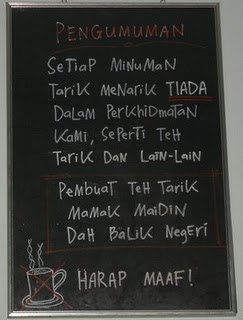 PENGUMUMAN
SETIAP MINUMAN
TARIK MENARIK TIADA
DALAM PERKHIDMATAN
KAMI, SEPERTI TEH
TARIK DAN LAIN-LAIN
PEMBUAT TEH TARIK
MAMAK MAIDIN
DAH BALIK NEGERI
HARAP MAAF!